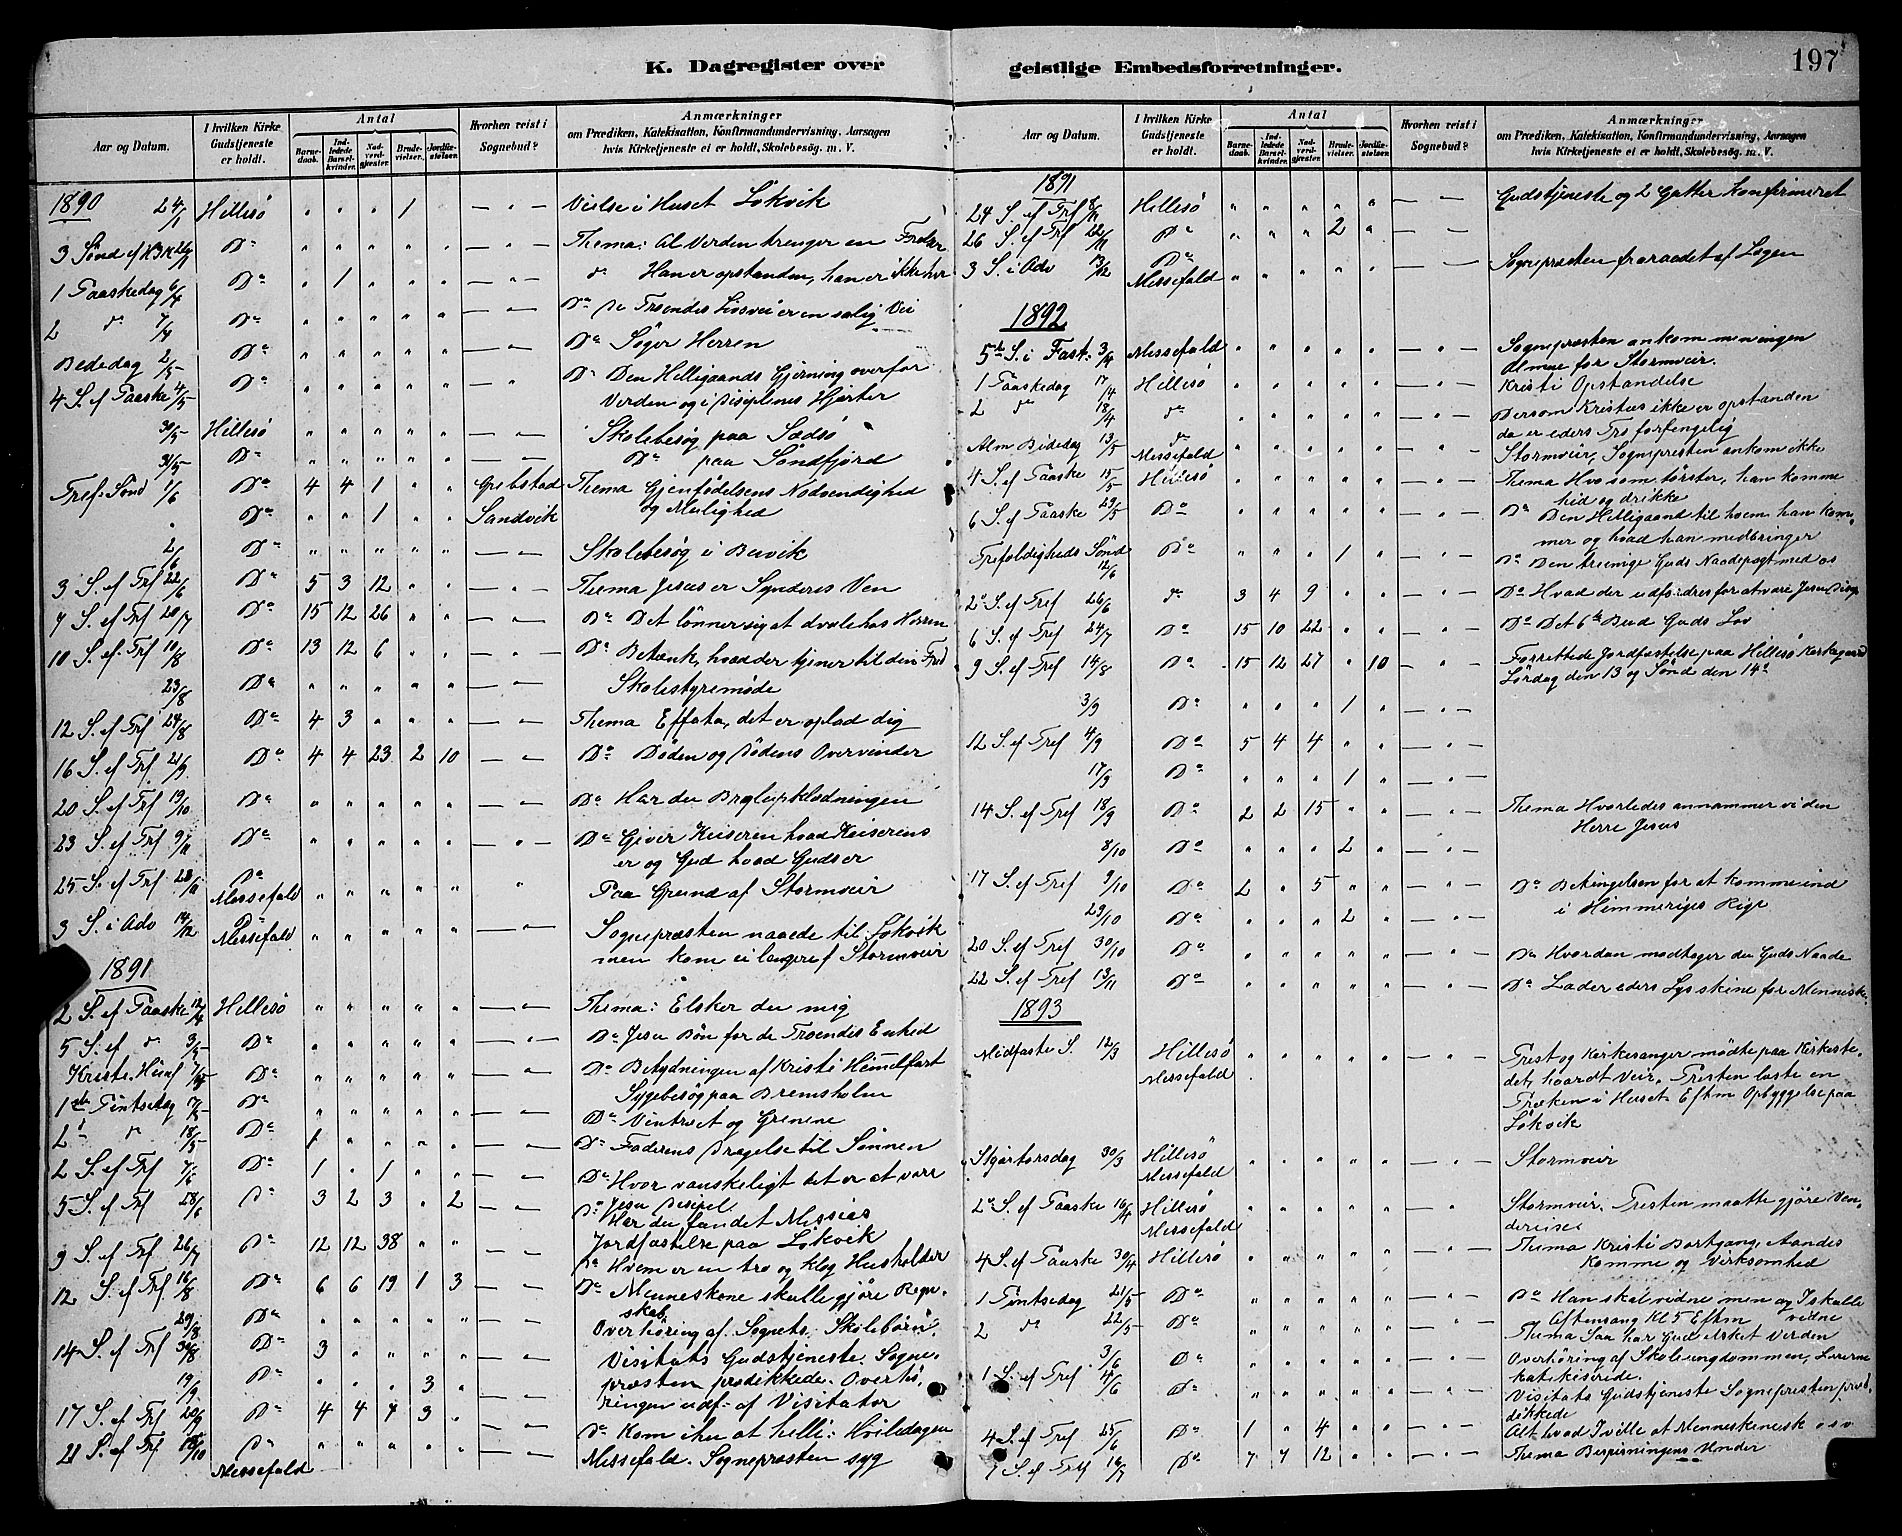 197
K. Dagregister over geistlige Embedsforretninger.
Aar og Datum. | I hvilken Kirke Gudstjeneste er holdt. | Antal: Barnedaab. Indledede Barselkvinder. Nadverdgjester. Brudevielser. Jordfæstelser. | Hvorhen reist i Sognebud? | Anmærkninger om Prædiken, Katekisation, Konfirmandundervisning, Aarsagen hvis Kirketjeneste ei er holdt, Skolebesøg. m. V.
1890 24/1 Hillesö " " " 1 — " — Vielse i Huset Lökvik
3 Sönd ef H3K 26/1 Do " " " " " — " — Thema: Al Verden trenger en Frelser
1 Paaskedag 6/4 Do " 1 " " " — " — do Han er opstanden, han er ikke her
2 do 7/4 Do " " " " " — " — Do De Troendes Livsvei er en salig Vei
Bededag 2/5 Do " " " " " — " — Do Söger Herren
4 S. ef Paaske 4/5 Do " " " " " — " Do Den Helligaands Gjerning overfor
Verden og i Disciplenes Hjerter
30/5 Hillesö " " " " " — " — Skolebesög paa Sædsö
31/5 Do " " " " " — " — Do paa Sandfjord
Tref. Sönd 1/6 Do 4 4 1 " " Grebstad Thema Gjenfödelsens Nödvendighed
" Do " " 1 " " Sandvik og Mulighed
2/6 Do " " " " " — " — Skolebesög i Buvik
3 S. ef Trf 22/6 Do 5 3 12 " " — " — Thema Jesus er Synderes Ven
7 S. ef Trf 20/7 Do 15 12 26 " " — " — Do Det lönner sig at dvæle hos Herren
10 S. ef Trf 10/8 Do 13 12 6 " " — " — Do Betænk, hvad der tjener til din Fred
23/8 Do " " " " " — " — Skolestyremöde
12 S. ef Trf 24/8 Do 4 3 " " " — " — Thema Effata, det er oplad dig
16 S. ef Trf 21/9 Do 4 4 23 2 10 — " — Do Döden og Dödens Overvinder
20 S. ef Trf 19/10 Do " " " " " — " — Do Har du Brylupsklædningen
23 S. ef Trf 9/11 Do " " " " " — " — Do Giver Keiseren hvad Keiserens
er og Gud hvad Guds er
25 S. ef Trf 23/11 Do Messefald " " " " " " Paa Grund af Stormveir
3 S. i Adv 14/12 Do Messefald " " " " " — " — Sognepræsten naaede til Lökvik
men kom ei længere f Stormveir
1891
2 S. ef Paaske 12/4 Hillesö " " " " " — " — Thema: Elsker du mig
5 S. ef do 3/5 Do " " " " " — " — Do Jesu Bön for de Troendes Enhed
Kristi Himf 7/5 Do " " " " " — " — Do Betydningen af Kristi Himmelfart
Sygebesög paa Bremsholm
1ste Pintsedag 17/5 Do " " " " " — " — Do Vintræet og Grenene
2 do 18/5 Do 1 " " " " — " — Do Faderens Dragelse til Sönnen
2 S. ef Trf 7/6 Do 1 " 1 " " — " — Do Hvor vanskeligt det er at være
Jesu Discipel
5 S. ef Trf 28/6 Do 3 2 3 " 2 — " — Do Har du fundet Messias
Jordfæstelse paa Lökvik
9 S. ef Trf 26/7 Do 12 12 38 " " — " — Do Hvem er en tro og klog Husholder
12 S. ef Trf 16/8 Do 6 6 19 1 3 — " — Do Menneskene skulle gjöre Regnskab
29/8 Do " " " " " — " — Overhöring af Sognets Skolebörn.
14 S. ef Trf 30/8 Do 3 " " " " — " — Visitats Gudstjeneste. Sogne-
præsten prædikkede. Overhö-
19/9 Do " " " 3 " ringen udf. af Visitator
17 S. ef Trf 20/9 Do 4 4 7 3 " — " — Do Kom ihu at hellig: Hviledagen
21 S. ef Trf 18/10 Do Messefald " " " " " — " — Messefald. Sognepræsten syg
1891
24 S. ef Trf 8/11 Hillesö " " " " " — " — Gudstjeneste og 2 Gutter Konfirmeret
26 S. ef Trf 22/11 Do " " " 2 " — " —
3 S. i Adv 13/12 Do Messefald " " " " " — " — Sognepræsten fraraadet af Lægen
1892
5te S. i Fast. 3/4 Messefald " " " " " — " — Sognepræsten ankom men ingen
Almue for Stormveir.
1 Paaskedag 17/4 Hillesö " " " " " — " — Kristi Opstandelse
2 do 18/4 do " " " " " — " — Dersom Kristus ikke er opstanden
da er eders Tro forfengelig
Alm Bededag 13/5 do Messefald " " " " " — " — Stormveir, Sognepresten ankom ikke
4 S. ef Paaske 15/5 Hillesö " " " " " — " — Thema Hvo som törster, han komme
hid og drikke
6 S. ef Paaske 29/5 Do " " " " " — " — Do Den Helligaand til hvem han kom-
mer og hvad han medbringer
Trefoldigheds Sönd 12/6 Do " " " 1 " — " — Do Den treenige Guds Naadepagt med os
2 S. ef Tref 26/6 do 3 4 9 " " — " — Do Hvad der udfordres for at være Jesu Disip
6 S. ef Tref 24/7 Do 15 10 22 " " — " — Do Det 6te Bud Guds Lov
9 S. ef Tref 14/8 Do 15 12 27 " 10 — " — Forrettede Jordfæstelse paa Hillesö Kirkegaard
Lördag den 13 og Sönd den 14de
3/9 Do " " " 1 " — " —
12 S. ef Tref 4/9 Do 5 4 4 " " — " —
17/9 Do " " " 1 " — " —
14 S. ef Tref 18/9 Do 2 2 15 " " — " — Thema Hvorledes annammer vi den
Herre Jesus
8/10 Do " " " 2 " — " —
17 S. ef Tref 9/10 Do 2 " 5 " " — " — Do Betingelsen for at komme ind
i Himmeriges Rige
29/10 Do " " " 2 " — " —
20 S. ef Tref 30/10 Do " " " " " — " — Do Hvordan modtager du Guds Naade
22 S. ef Tref 13/11 Do " " " " " — " — Do Lader eders Lys skine for Menneske.
1893
Midfaste S. 12/3 Hillesö Messefald " " " " " — " — Prest og Kirkesanger mödte paa Kirkeste-
det, haardt Veir. Presten læste en
Præken i Huset Efhm Opbyggelse paa
Lökvik
Skjærtorsdag 30/3 Hillesö Messefald " " " " " — " — Stormveir
2 S. ef Paaske 16/4 Hillesö Messefald " " " " " — " — Stormveir. Presten maatte gjöre Ven-
dereise
4 S. ef Paaske 30/4 Hillesö " " " " " — " — Thema Kristi Bortgang, Aandes
Komme og Virksomhed
1 Pintsedag 21/5 Do " " " " " — " — Do Han skal vidne men og I skulle
vidne
2 do 22/5 Do " " " " " — " — Aftensang Kl 5 Efhm
Thema Saa har Gud elsket Verden
3/6 Do " " " " " — " — Overhöring af Skoleungdommen, Lærerne
katekiserede.
1 S. ef Tref 4/6 Do " " " " " — " — Visitats Gudstjeneste Sognepresten præ-
dikkede
4 S. ef Tref 25/6 Do 1 " 4 " " — " — Alt hvad I ville at Menneskene sk o s v
7 S. ef Tref 16/7 Do 7 7 12 " " — " — Thema Bespisningens Under